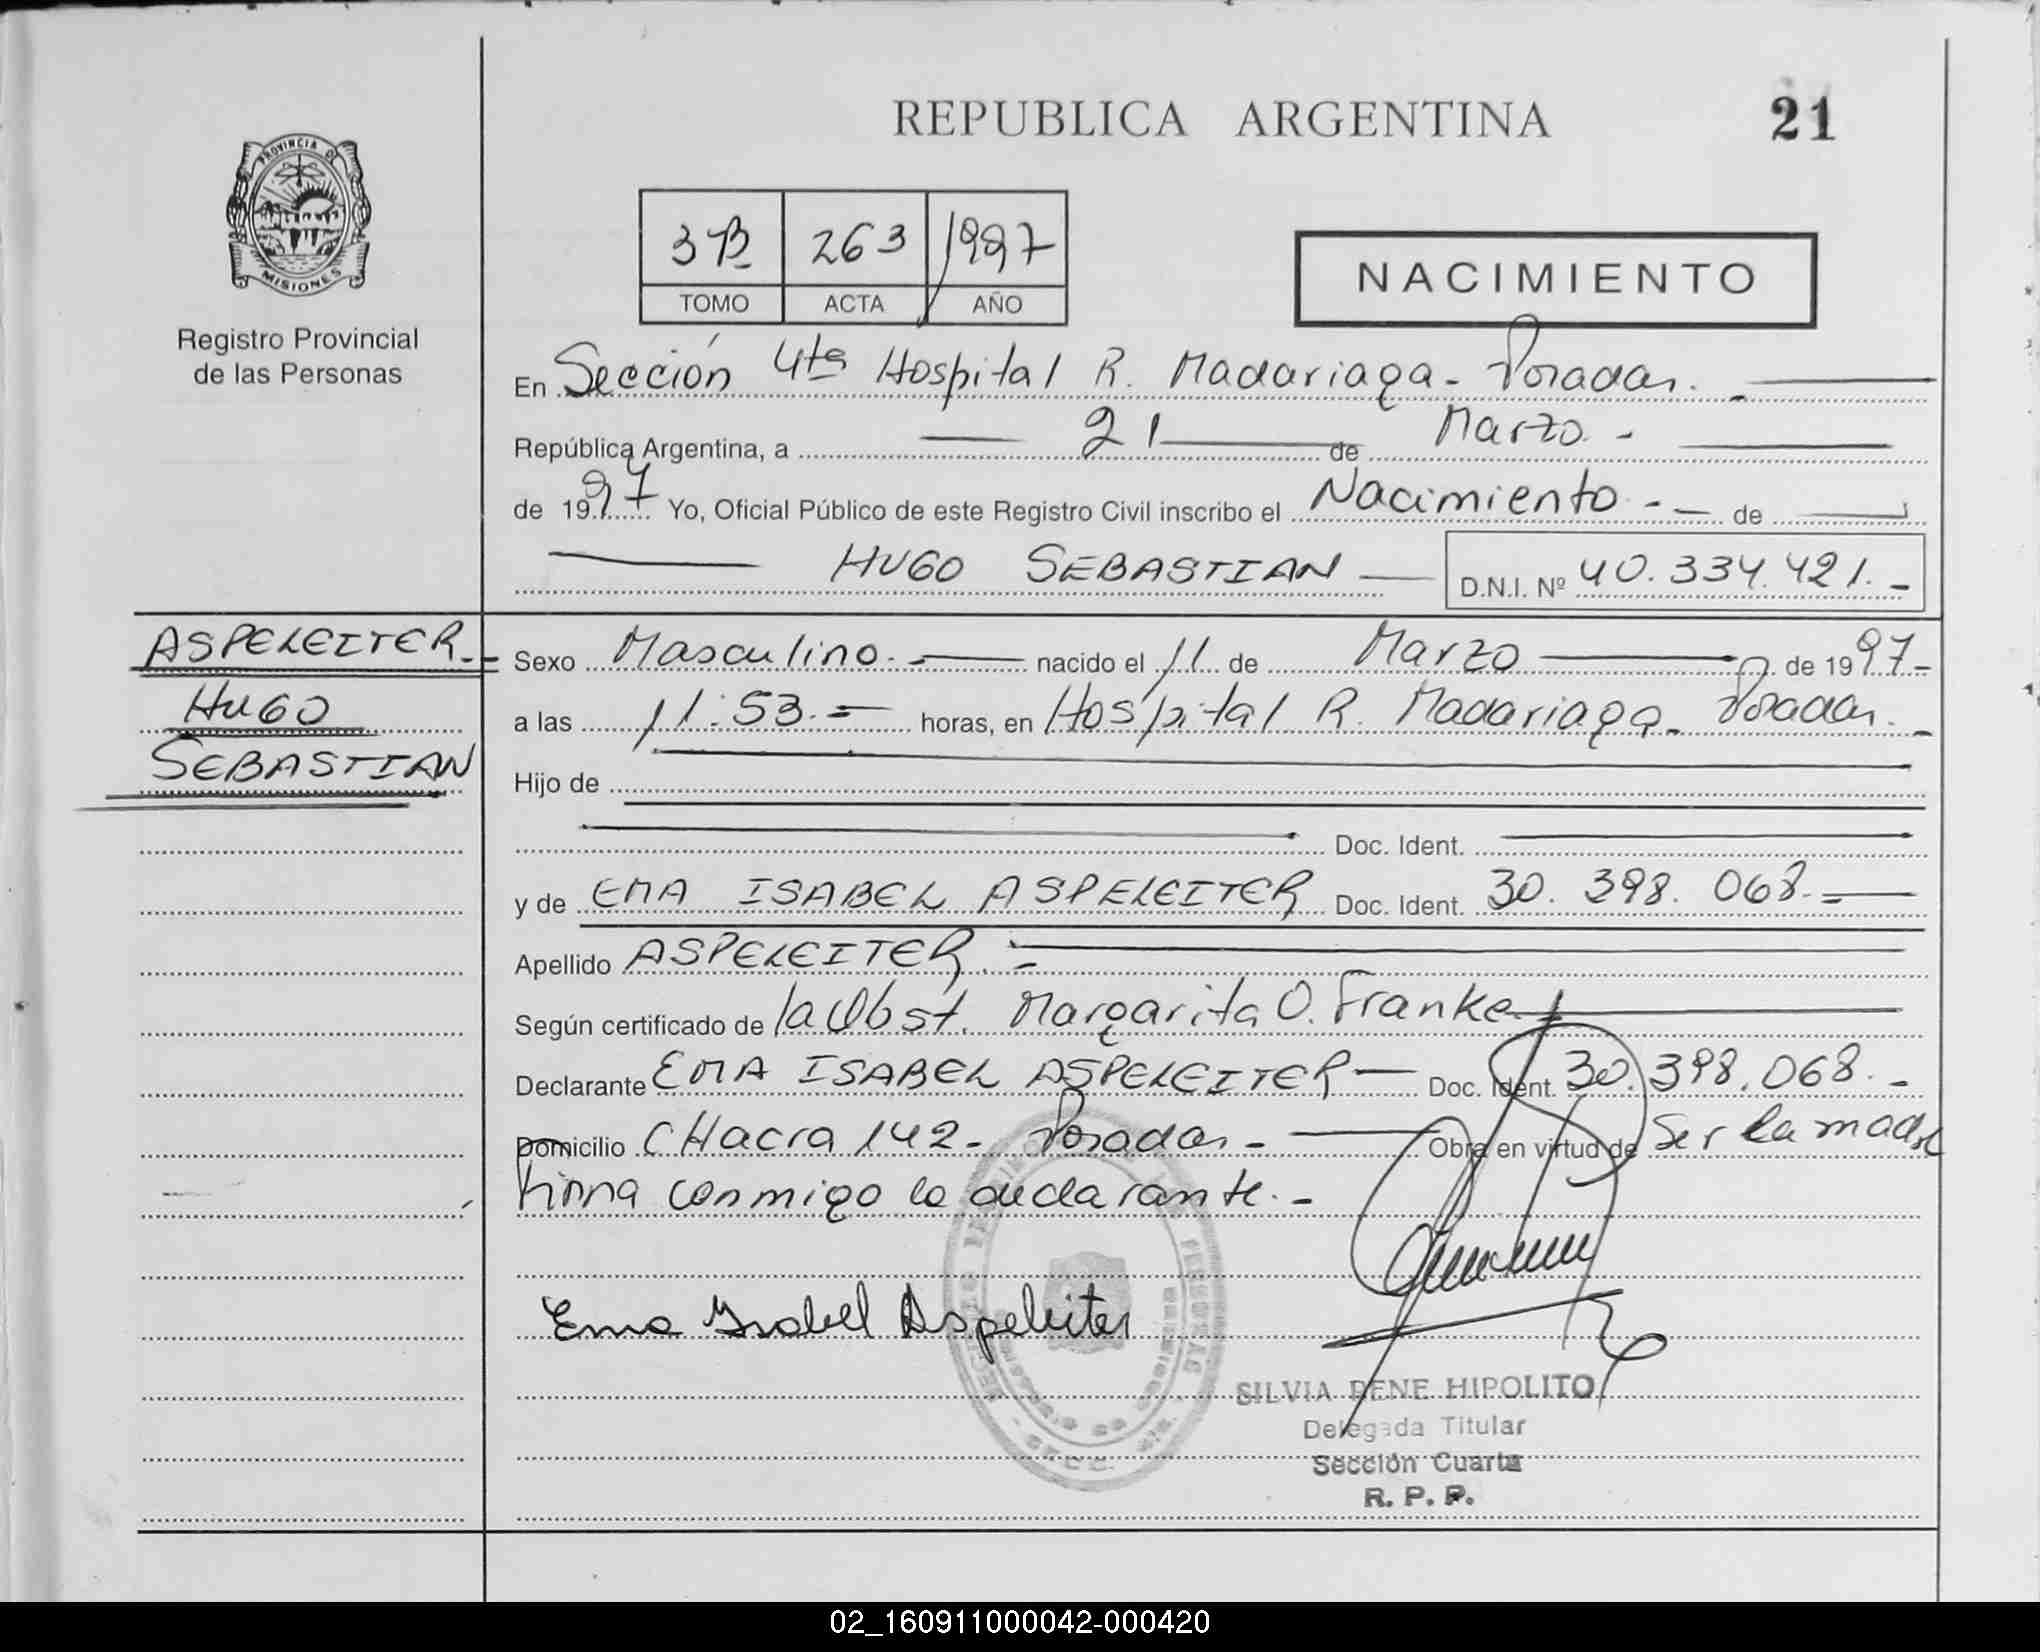 REPUBLICA ARGENTINA
21
PROVINCIA DE
MISIONES
Registro Provincial
de las Personas
3B 263 1997
TOMO ACTA AÑO
NACIMIENTO
En Sección 4ta Hospital R. Madariaga - Posadas. -
República Argentina, a 21 de Marzo. -
de 1997 Yo, Oficial Público de este Registro Civil inscribo el Nacimiento - - de
HUGO SEBASTIAN D.N.I. Nº 40.334.421.-
ASPELEITER.-
HUGO
SEBASTIAN
Sexo Masculino.- nacido el 11 de Marzo de 1997-
a las 11:53.= horas, en Hospital R. Madariaga - Posadas. -
Hijo de
Doc. Ident.
y de EMA ISABEL ASPELEITER Doc. Ident. 30. 398. 068.=
Apellido ASPELEITER. -
Según certificado de la Obst. Margarita O. Franke.
Declarante EMA ISABEL ASPELEITER - Doc. Ident. 30.398.068.-
Domicilio CHacra 142 - Posadas - Obra en virtud de Ser la madre
firma conmigo la declarante. -
Ema Isabel Aspeleiter
SILVIA RENE HIPOLITO
Delegada Titular
Sección Cuarta
R. P. P.
02_160911000042-000420